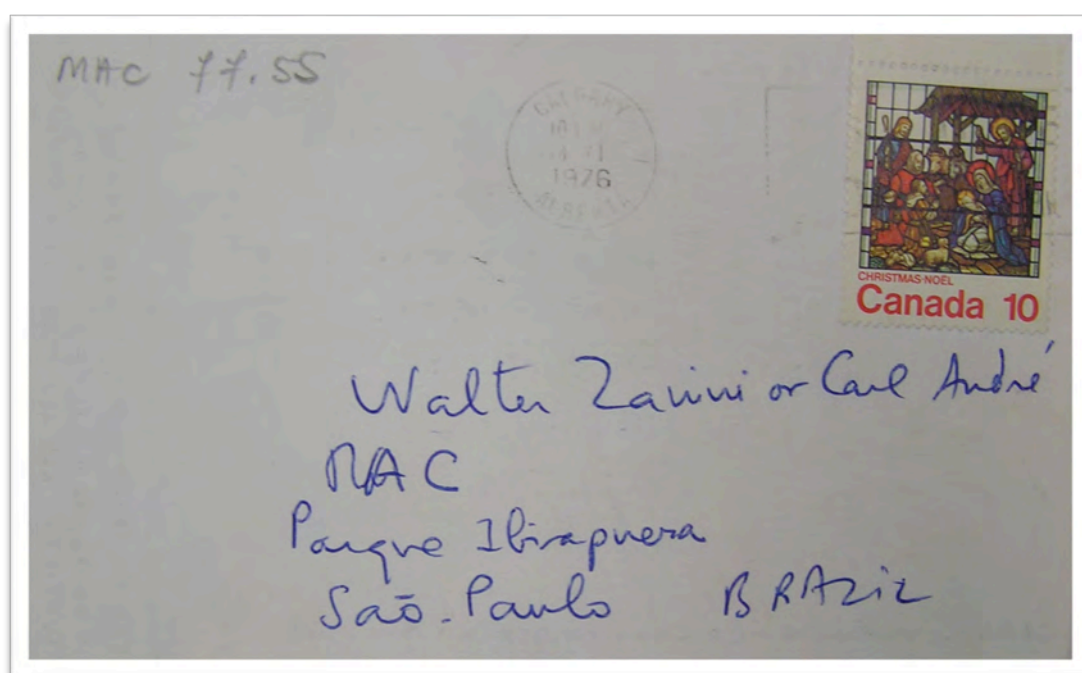 MAC 77.55
CALGARY
1976
ALBERTA
CHRISTMAS·NOËL
Canada 10
Walter Zanini or Carl André
MAC
Parque Ibirapuera
Saõ-Paulo BRAZiL